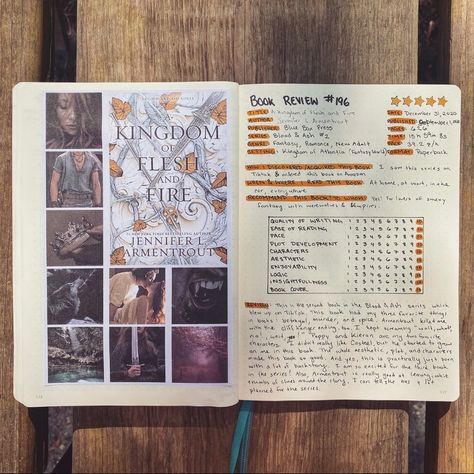 A BLOOD AND ASH NOVEL
KINGDOM
OF
FLESH
AND
FIRE
BESTSELLING AUTHOR
JENNIFER L.
ARMENTROUT
BOOK REVIEW #196
TITLE: A Kingdom of Flesh and Fire
Jennifer L. Armentrout
PUBLISHER: Blue Box Press
SERIES: Blood & Ash #2
GENRE: Fantasy, Romance, New Adult
SETTING: Kingdom of Atlantia (fantasy world)
DATE: December 31, 2020
PUBLISHED: September 1, 2020
PAGES: 626
TIME: 15 h 59m 8s
PACE: 39.2 p/h
FORMAT: Paperback
HOW I DISCOVERED/ACQUIRED THIS BOOK: I saw this series on
Tiktok & ordered this book on Amazon
WHEN & WHERE I READ THIS BOOK: At home, at work, in the
car, everywhere
RECOMMEND THIS BOOK? TO WHOM? Yes! To lovers of smutty
fantasy with werewolves & vampires.
QUALITY OF WRITING 1 2 3 4 5 6 7 8 9 10
EASE OF READING 1 2 3 4 5 6 7 8 9 10
PACE 1 2 3 4 5 6 7 8 9 10
PLOT DEVELOPMENT 1 2 3 4 5 6 7 8 9 10
CHARACTERS 1 2 3 4 5 6 7 8 9 10
AESTHETIC 1 2 3 4 5 6 7 8 9 10
ENJOYABILITY 1 2 3 4 5 6 7 8 9 10
LOGIC 1 2 3 4 5 6 7 8 9 10
INSIGHTFULNESS 1 2 3 4 5 6 7 8 9 10
BOOK COVER 1 2 3 4 5 6 7 8 9 10
REVIEW: This is the second book in the Blood & Ash series which
blew up on TikTok. This book had my three favorite things
in books: betrayal, murder, and spice. Armentrout killed me
with the cliff hanger ending, too. I kept screaming "wait, what,
no, wait, yes!" Poppy and Kieran are my two favorite
characters. I didn't really like Casteel, but he started to grow
on me in this book. The whole aesthetic, plot, and characters
made this book so good. And yes, this is practically just porn
with a lot of backstory. I am so excited for the third book
in the series! Also, Armentrout is really good at leaving little
crumbs of clues around the story. I can tell she has a lot
planned for the series.